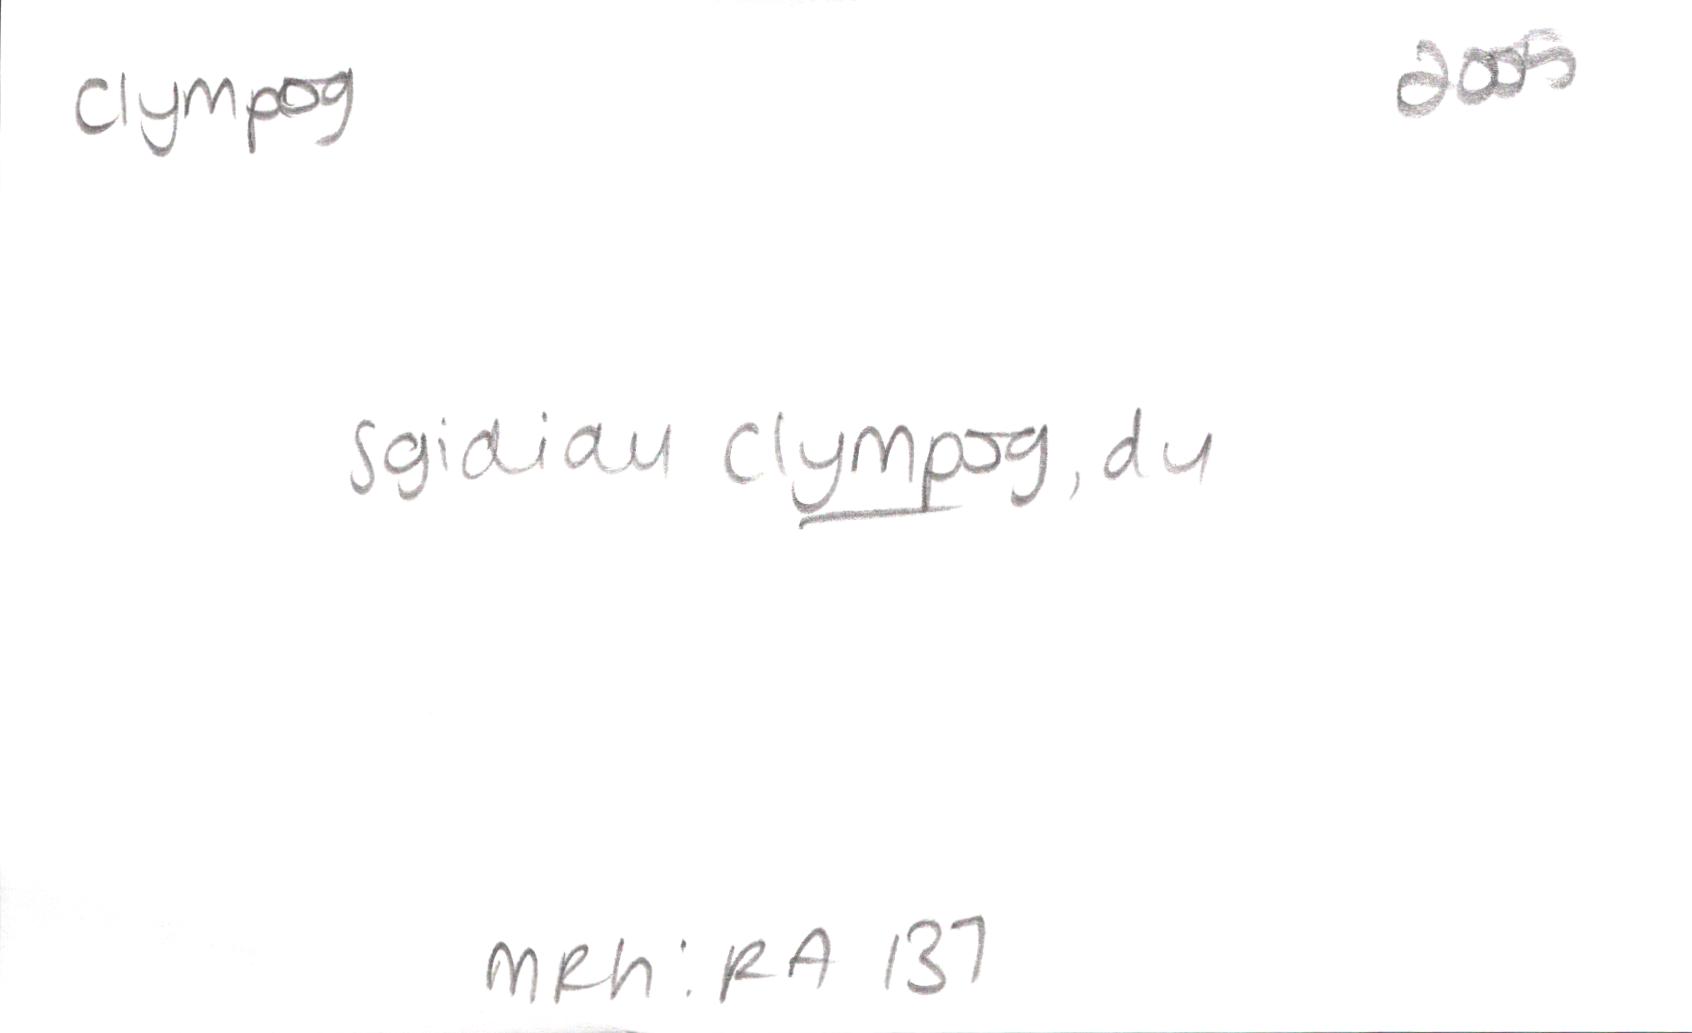 Clympog 2005
Sgidiau Clympog, du
MRh: RA 137